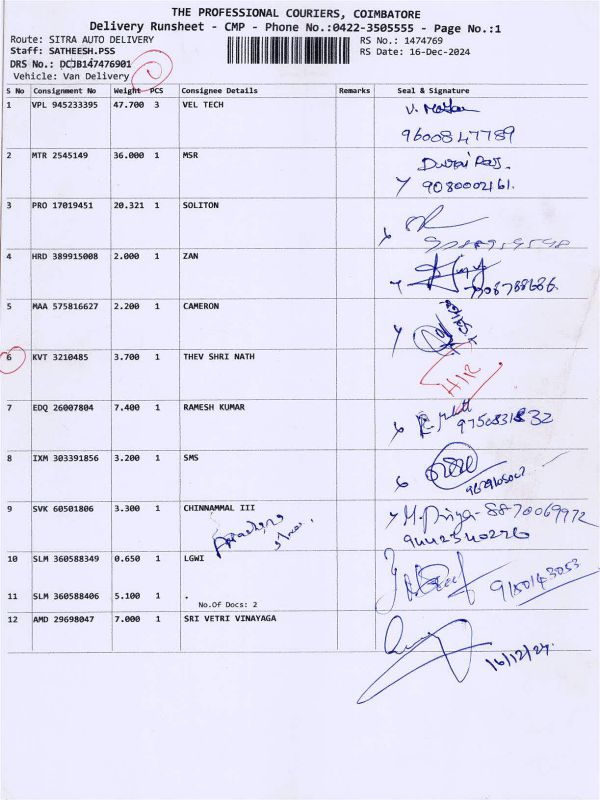 THE PROFESSIONAL COURIERS, COIMBATORE
Delivery Runsheet - CMP - Phone No.:0422-3505555 - Page No.:1
Route: SITRA AUTO DELIVERY RS No.: 1474769
Staff: SATHEESH.PSS RS Date: 16-Dec-2024
DRS No.: DCJB147476901
Vehicle: Van Delivery
S No Consignment No Weight PCS Consignee Details Remarks Seal & Signature
1 VPL 945233395 47.700 3 VEL TECH
9600847789
2 MTR 2545149 36.000 1 MSR Durai Raj.
9080002161.
3 PRO 17019451 20.321 1 SOLITON
4 HRD 389915008 2.000 1 ZAN
5 MAA 575816627 2.200 1 CAMERON
6 KVT 3210485 3.700 1 THEV SHRI NATH
7 EDQ 26007804 7.400 1 RAMESH KUMAR
8 IXM 303391856 3.200 1 SMS
9 SVK 60501806 3.300 1 CHINNAMMAL III M. Priya-8870069972
9442540226
10 SLM 360588349 0.650 1 LGWI
9150143053
11 SLM 360588406 5.100 1 .
No.Of Docs: 2
12 AMD 29698047 7.000 1 SRI VETRI VINAYAGA
16/12/24